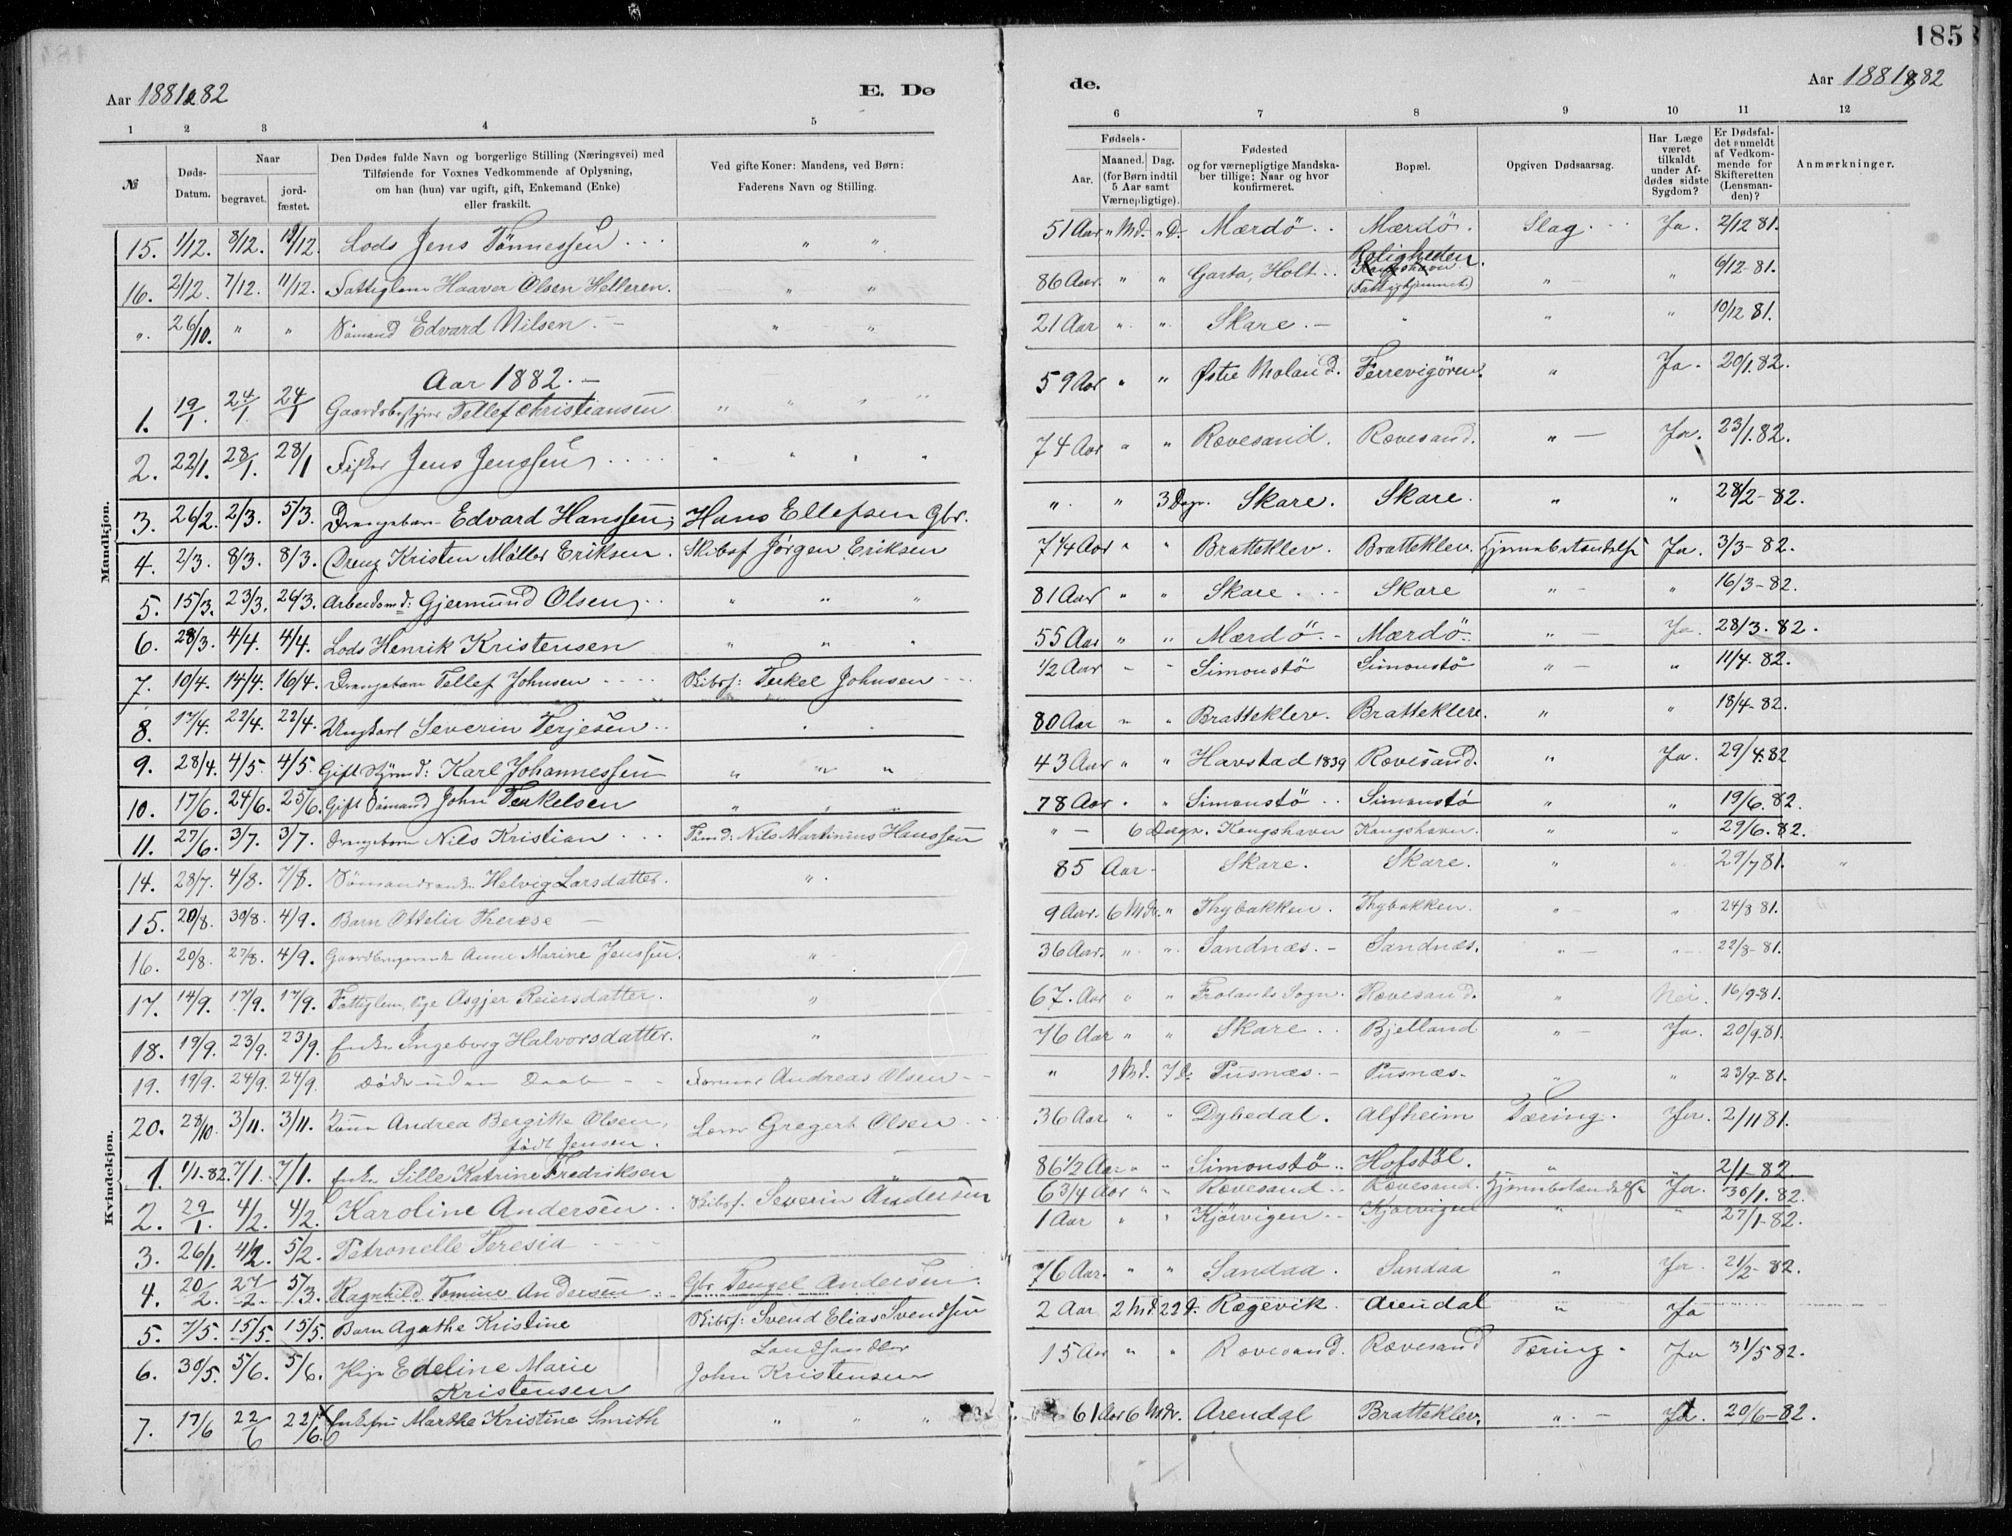 185
Aar 1881 & 82
E. Dø
de.
Aar 1881 & 82
1 2 3 4 5
6 7 8 9 10 11 12
№
Døds-Datum.
Naar
begravet.
jord-fæstet.
Den Dødes fulde Navn og borgerlige Stilling (Næringsvei) med
Tilføiende for Voxnes Vedkommende af Oplysning,
om han (hun) var ugift, gift, Enkemand (Enke)
eller fraskilt.
Ved gifte Koner: Mandens, ved Børn:
Faderens Navn og Stilling.
Fødsels-
Aar.
Maaned. Dag.
(for Børn indtil
5 Aar samt
Værnepligtige).
Fødested
og for værnepligtige Mandska-
ber tillige: Naar og hvor
konfirmeret.
Bopæl.
Opgiven Dødsaarsag.
Har Læge
været
tilkaldt
under Af-
dødes sidste
Sygdom?
Er Dødsfal-
det anmeldt
af Vedkom-
mende for
Skifteretten
(Lensman-
den)?
Anmærkninger.
Mandkjøn.
15. 1/12. 8/12. 11/12. Lods Jens Tönnessen " " 51 Aar " Md. " D. Mærdö Mærdö. Slag. Ja. 2/12 81.
16. 2/12. 7/12. 11/12. Fattiglem Haaver Olsen Helleren. " " 86 Aar. " " Garta, Holt. Roligheden. Kongshavn (Fattighjemmet) " " 6/12-81.
". 26/10. " " Sömand Edvard Nilsen. " " 21 Aar " " Skare. " " " 10/12 81.
Aar 1882.
1. 19/1. 24/1. 24/1 Gaardsbestyrer Tellef Christiansen " " 59 Aar " " Østre Moland. Færrevigören. " Ja. 20/1.82.
2. 22/1. 28/1 28/1 Fisker Jens Jenssen " " 74 Aar " " Rævesand. Rævesand. " Ja. 23/1.82.
3. 26/2. 2/3. 5/3. Drengebarn Edvard Hanssen, Hans Ellefsen Gbr. " " 3 Dage. Skare. Skare. " " 28/2-82.
4. 2/3. 8/3. 8/3. Dreng Kristen Möller Eriksen. Skibsf Jörgen Eriksen 7 1/4 Aar " " Bratteklev. Bratteklev. Hjernebetændelse Ja. 3/3-82.
5. 15/3. 23/3. 26/3. Arbeidsmd: Gjermund Olsen, " " " 81 Aar " " Skare Skare " " 16/3-82.
6. 28/3. 4/4. 4/4. Lods Henrik Kristensen " " " 55 Aar " " Mærdö. Mærdö. " Ja. 28/3.82.
7. 10/4. 14/4. 16/4. Drengebarn Tellef Johnsen Skibsf: Terkel Johnsen 1/2 Aar " " Simonstö Simonstö " " 11/4-82.
8. 17/4. 22/4. 22/4. Ungkarl Severin Terjesen " " 80 Aar " " Bratteklev. Bratteklev. " " 18/4-82.
9. 28/4. 4/5. 4/5. Gift Styrmd: Karl Johannessen " " " 43 Aar " " Havstad 1839 Rævesand. " Ja. 29/4.82
10. 17/6. 24/6. 25/6. Gift Sömand John Terkelsen " " " 78 Aar " " Simonstö Simonstö " " 19/6.82.
11. 27/6. 3/7. 3/7. Drengebarn Nils Kristian Tömd: Nils Martinius Hanssen " 6 Dage. Kongshavn Kongshavn. " " 29/6.82.
Kvindekjøn.
14. 28/7. 4/8. 7/8. Sömandsenke Helvig Larsdatter. " 85 Aar. Skare. Skare. " " 29/7 81. "
15. 20/8. 30/8. 4/9. Barn Ottelia Therese 9 Aar. 6 Mdr. " Thybakken. Thybakken. " " 24/8 81.
16. 20/8. 27/8. 4/9. Gaardbrugerenke Anne Marine Jenssen. " 36 Aar. " " Sandnæs. Sandnæs. " " 22/8-81.
17. 14/9. 17/9. 17/9. Fattiglem, Pige Asgjer Reiersdatter. " 67. Aar " " Frolands Sogn. Rævesand. " Nei. 16/9-81.
18. 19/9. 23/9. 23/9. Enke Ingeborg Halvorsdatter. " 76 Aar " " Skare Bjelland " Ja. 20/9-81.
19. 19/9. 24/9. 24/9. Döde uden Daab Andreas Olsen " 1 Md. 7 D: Pusnæs. Pusnæs. " " 23/9-81.
20. 28/10. 3/11. 3/11. Kone Andrea Bergitte Olsen, Gregert Olsen 36 Aar " " Dybedal. Alfheim Tæring. Ja. 2/11 81.
født Jensen.
1. 1/1-82. 7/1. 7/1. Enke Sille Katrine Fredriksen " 86 1/2 Aar " " Simonstö Hofstöl. " 2/1-82.
2. 29/1. 4/2. 4/2. Karoline Andersen Skibsf. Severin Andersen 6 3/4 Aar " " Rævesand Rævesand. Hjernebetændelse Ja. 30/1.82.
3. 26/1. 4/2. 5/2. Petronelle Teresia 1 Aar " " Kjörvigen Kjörvigen " " 27/1-82.
4. 20/2. 27/2. 5/3. Ragnhild Tomine Andersen Gbr Tengel Andersen. 76 Aar. " " Sandaa. Sandaa " Ja. 21/2-82.
5. 7/5. 15/5. 15/5. Barn Agathe Kristine Skibsf: Svend Elias Svendsen 2 Aar 2 Md 22 d. Rægevik. Arendal " Ja
6. 30/5. 5/6. 5/6. Pige Edeline Marie Landhandler 15 Aar " " Rævesand. Rævesand Tæring Ja 31/5 82.
Kristensen John Kristensen
7. 17/6 22/6 22/6. Enkefru Marthe Kristine Smith " " " 61 Aar 6 Mdr. Arendal Bratteklev. " Ja 20/6-82.